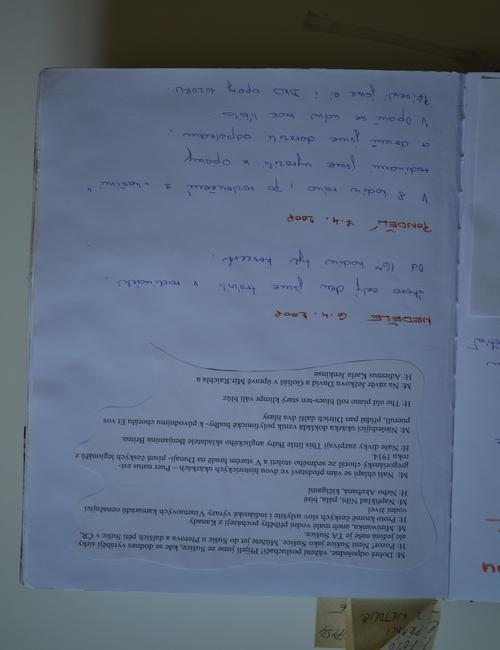 M: Dobré odpoledne, vážení posluchači! Přijeli jsme ze Sušice, kde se dodnes vyrábějí sirky.
H: Pozor! Není Sušice jako Sušice. Můžete jet do Sušic u Přerova a dalších pěti Sušic v ČR,
ale jediná naše je TA Sušice.
M: Miniwanka, aneb malé vodní příběhy pocházejí z Kanady
H: Proto kromě českých slov uslyšíte i indiánské výrazy Vinetuových kamarádů označující
vodní živel
M: Například Nibi, pala, biré
H: Nebo Akebana, kigičami
M: Naši chlapi se vám představí ve dvou historických ukázkách – Puer natus est-
gregoriánský chorál ze sedmého století a V starém hradě na Dunaji- píseň českých legionářů z
roku 1914.
H: Naše dívky zazpívají This little Baby anglického skladatele Benjamina Britna.
M: Následující ukázka dokládá vznik polyfonické hudby- k původnímu chorálu Et vos
pueruli, přidal pan Ditrich další dva hlasy
H: The old piano roll blues-ten starý klimpr válí blůz
M: Na závěr Ježkovu David a Goliáš v úpravě Mir.Raichla a
H: Adiemus Karla Jenkinse
NEDĚLE 6.4. 2008
skoro celý den jsme trávili v rodinách
Od 16°° hodin byl koncert.
PONDĚLÍ 7.4. 2008
V 8 hodin ráno, po rozloučení s "našimi"
rodinami jsme vyrazili z Opavy
a domů jsme dorazili odpoledne.
V Opavě se nám moc líbilo.
Přivezli jsme si i DVD opavy